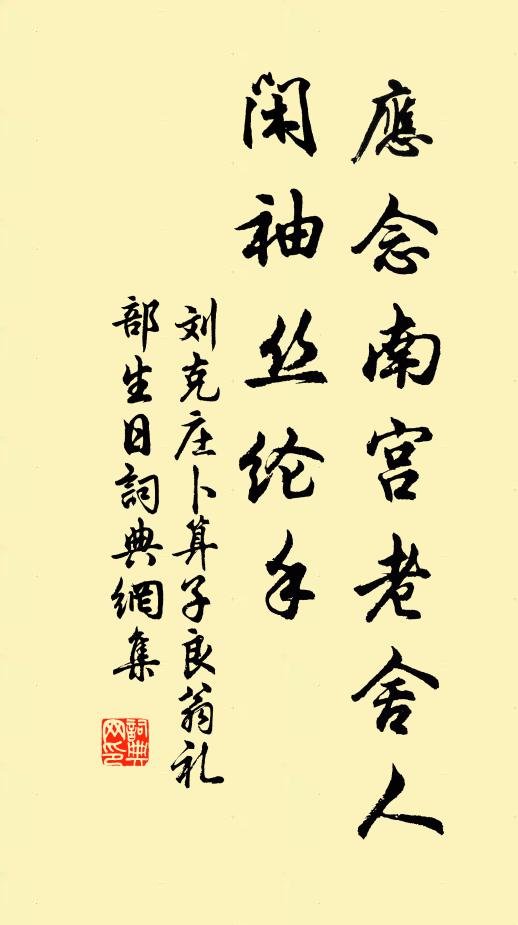 應念南宫老舍人
闲袖丝纶手
刘克庄卜算子良翁礼
部生日詞典網集
詞典
网印